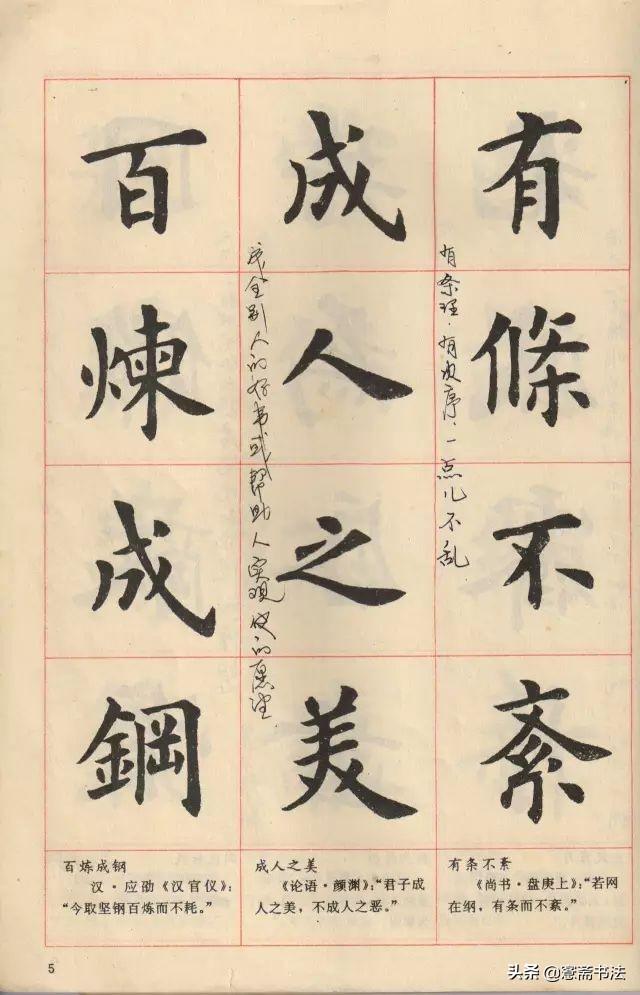 有條不紊
有条理.有次序.一点儿不乱
成人之美
成全别人的好事或帮助人实现他的愿望.
百煉成鋼
有条不紊
《尚书·盘庚上》:“若网
在纲,有条而不紊。”
成人之美
《论语·颜渊》:“君子成
人之美,不成人之恶。”
百炼成钢
汉·应劭《汉官仪》:
“今取坚钢百炼而不耗。”
5
头条@蹇斋书法